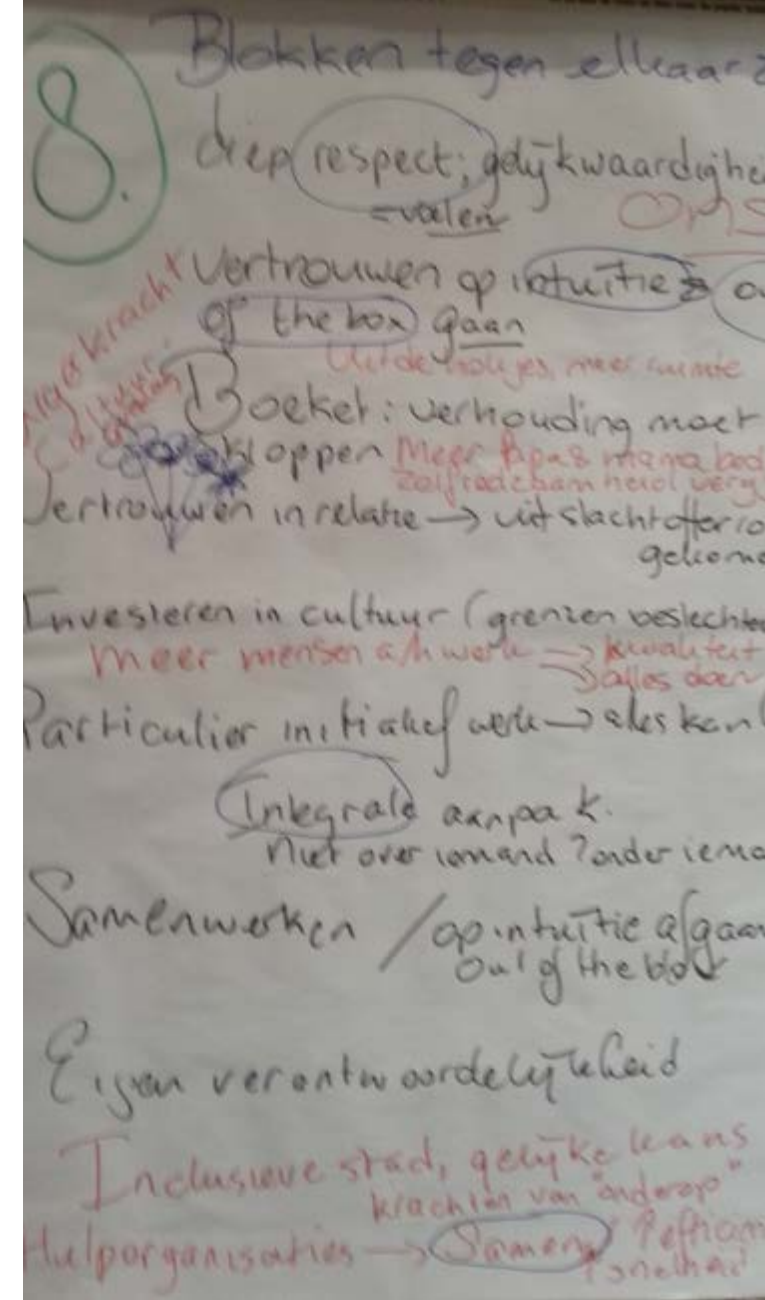 8.
Blokken tegen elkaar
diep respect; gelijkwaardighe
=voelen
OMS
Vertrouwen op intuïtie & o
of the box gaan
Uit de hokjes, meer ruimte
Boeket: verhouding moet
kloppen Meer papa & mama
zelfredzaamheid
Vertrouwen in relatie → uit slachtoffer
gekome
Investeren in cultuur (grenzen beslechte
Meer mensen a/h werk → kwaliteit
alles doen
Particulier initiatief werk → alles kan
Integrale aanpak.
Niet over iemand ? onder iema
Samenwerken / op intuïtie afgaan
out of the box
Eigen verantwoordelijkheid
Inclusieve stad, gelijke kans
krachten van "onderop"
Hulporganisaties → Samen
snelheid